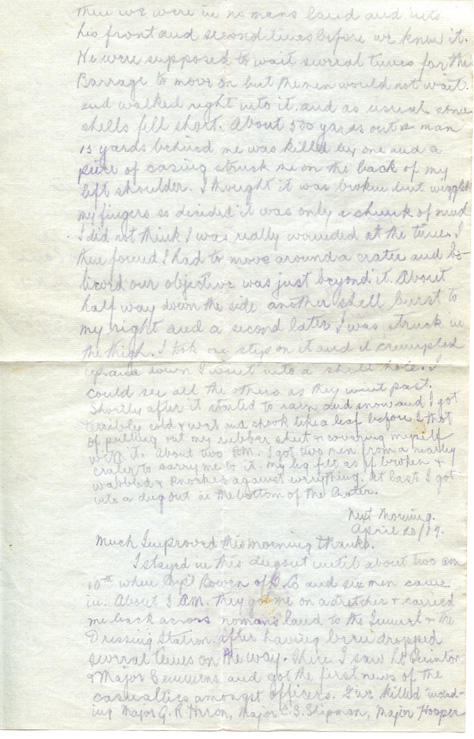 then we were in no mans land and into
his front and second lines before we knew it.
We were supposed to wait several times for the
Barrage to move on but the men would not wait
and walked right into it and as usual some
shells fell short. About 500 yards out a man
15 yards behind me was killed by one and a
piece of casing struck me on the back of my
left shoulder. I thought it was broken but wiggled
my fingers so decided it was only a chunk of mud
I did not think I was really wounded at the time. I
then found I had to move around a crater and
our objective was just beyond it. About
half way down the side another shell burst to
my right and a second later I was struck in
the thigh. I took one step on it and it crumpled
up and down I went into a shell hole. I
could see all the others as they went past.
Shortly after it started to rain and snow and I got
terribly cold & wet and shook like a leaf before I thot
of pulling out my rubber sheet & covering myself
with it. About two P.M. I got two men from a nearby
crater to carry me to it. my leg felt as if broken &
wobbled & knocked against everything. At last I got
into a dugout in the bottom of the Crater.
Next Morning.
April 20/17.
Much Improved this morning thanks.
I stayed in this dugout until about two am
10th when Bowen of and six men came
in. About 3 AM. they got me on a stretcher & carried
me back across nomans land to the Tunnel & the
Dressing Station after having been dropped
several times on the way. Here I saw
& Major and got the first news of the
casualties amongst officers. Five killed includ-
ing Major G. R. Heron, Major C. S. Shipman, Major Hooper